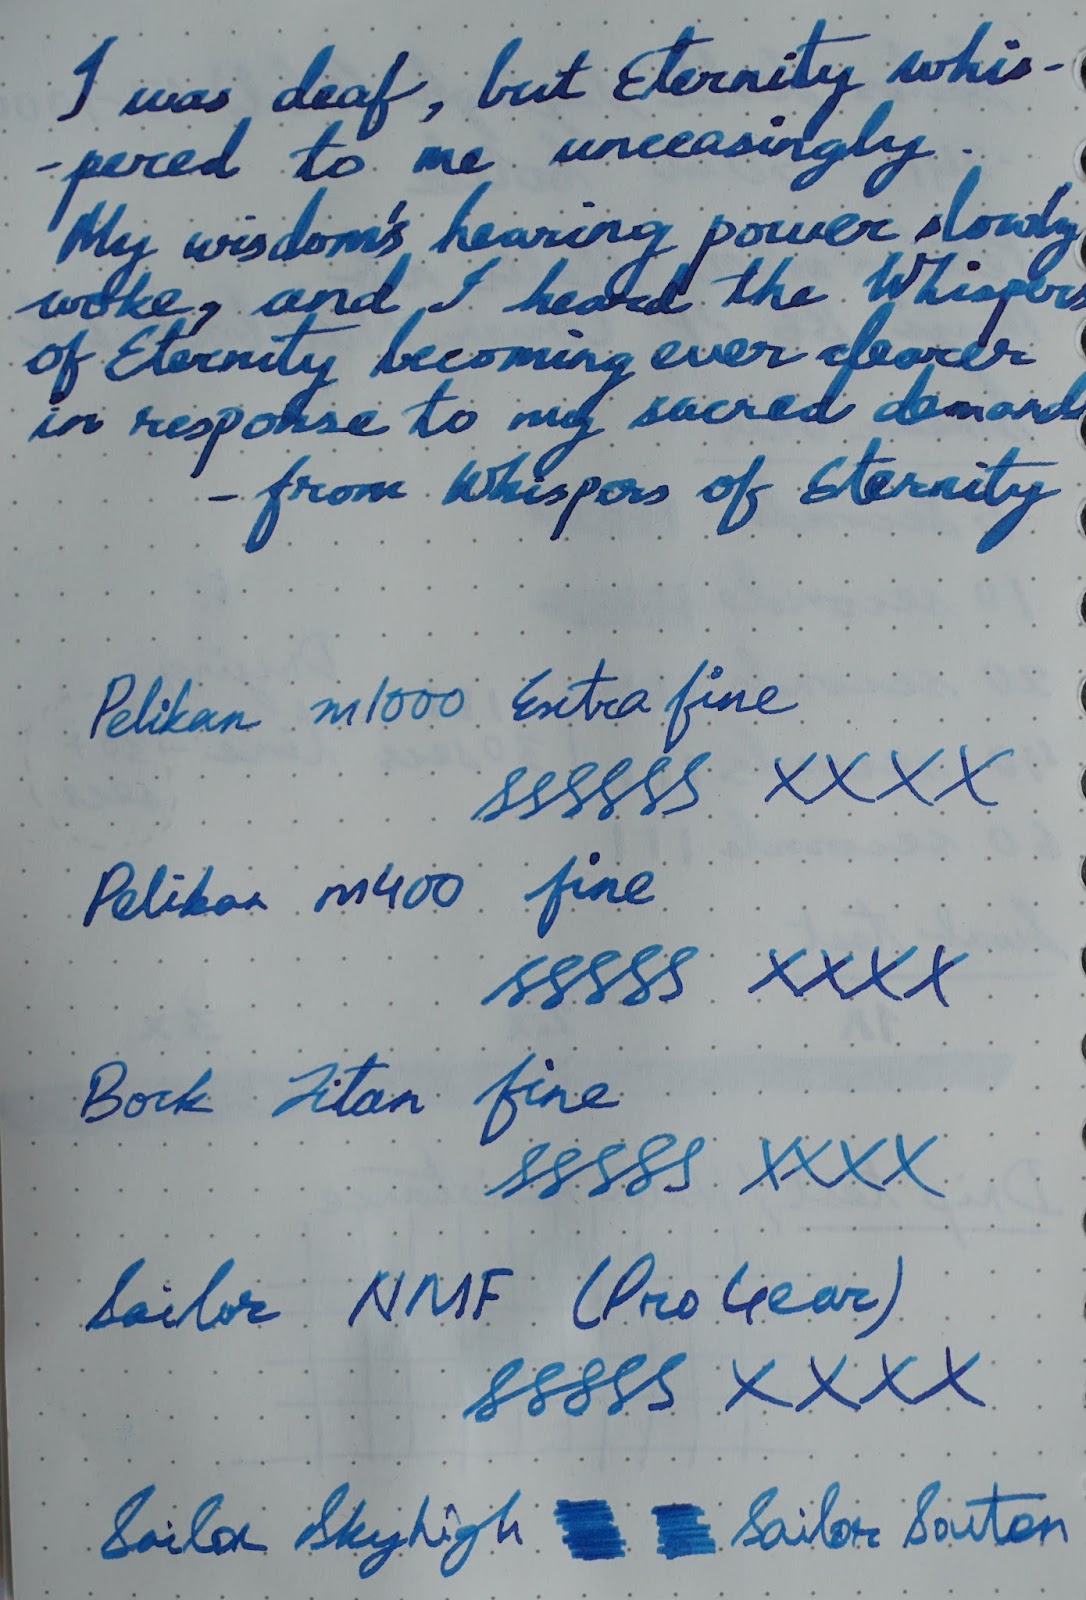 I was deaf, but Eternity whis-
-pered to me unceasingly.
My wisdom's hearing power slowly
woke, and I heard the Whispers
of Eternity becoming ever clearer
in response to my sacred demand
- from Whispers of Eternity
Pelikan m1000 Extra fine
SSSSSS XXXX
Pelikan m400 fine
SSSSS XXXX
Bock Titan fine
SSSSS XXXX
Sailor NMF (Pro Gear)
SSSSS XXXX
Sailor Skyhigh Sailor Souten